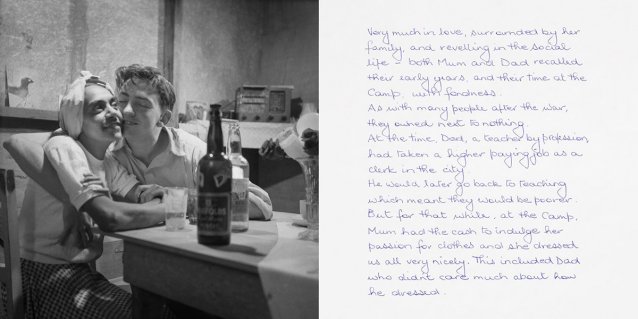 Very much in love, surrounded by her
family, and revelling in the social
life - both Mum and Dad recalled
their early years, and their time at the
Camp, with fondness.
As with many people after the war,
they owned next to nothing.
At the time, Dad, a teacher by profession,
had taken a higher paying job as a
clerk in the city.
He would later go back to teaching
which meant they would be poorer.
But for that while, at the Camp,
Mum had the cash to indulge her
passion for clothes and she dressed
us all very nicely. This included Dad
who didn't care much about how
he dressed.